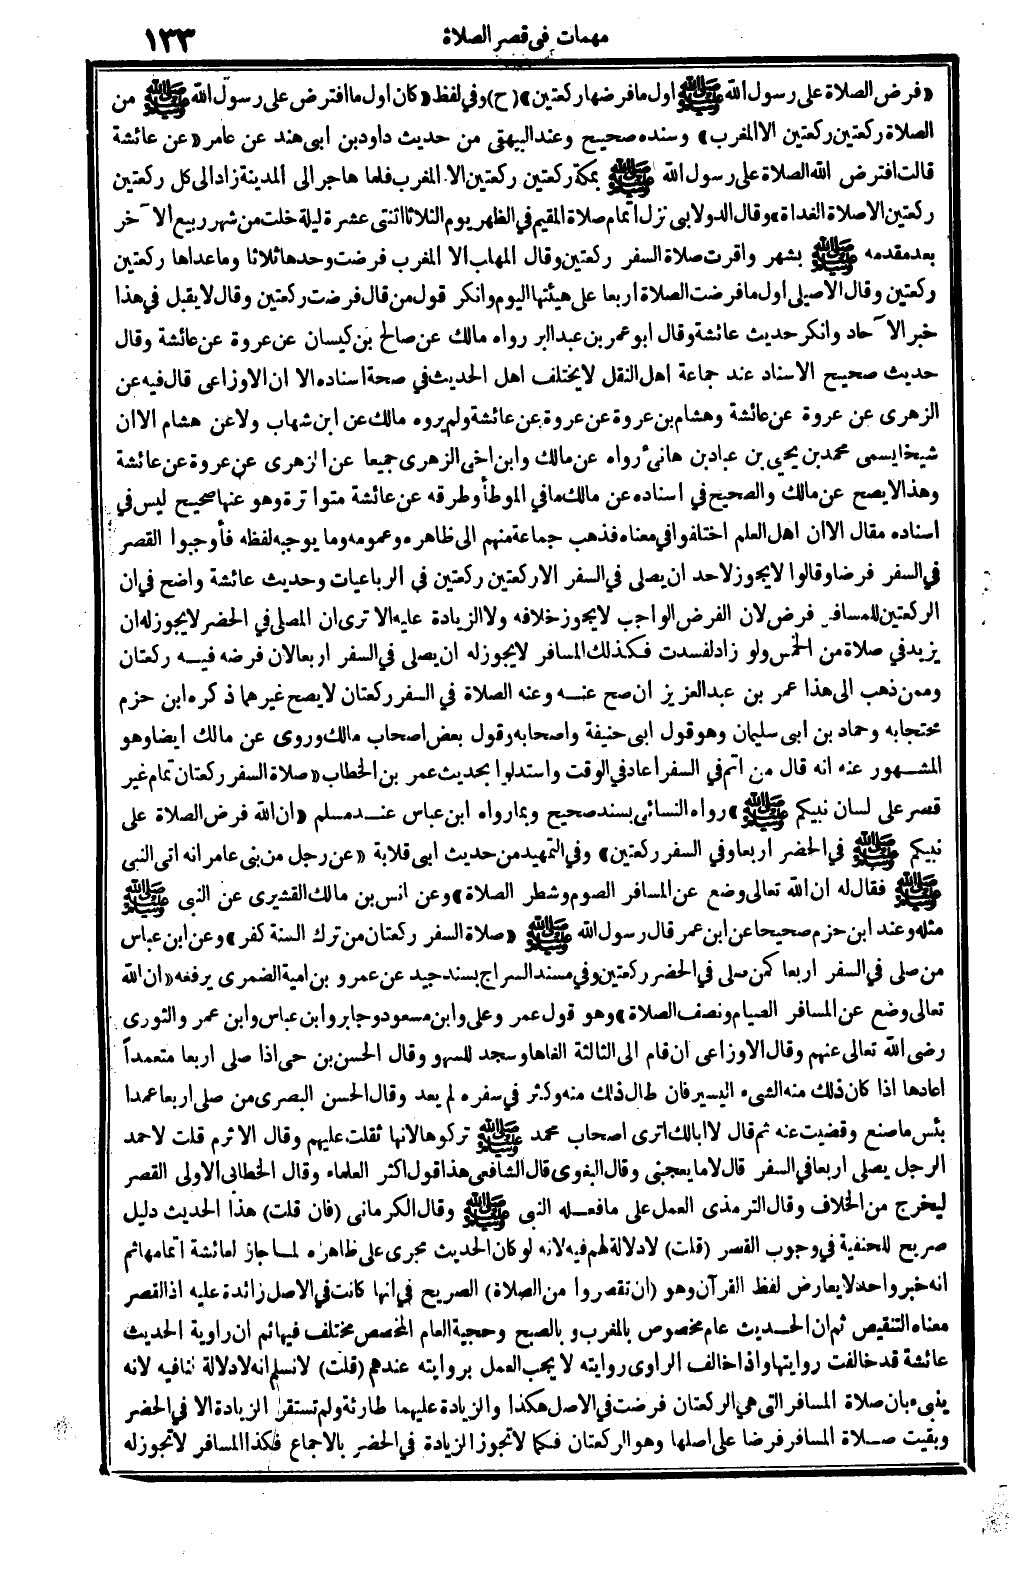 مهمات فى قصر الصلاة ١٣٣
«فرض الصلاة على رسول الله ﷺ اول ما فرضها ركعتين» (ح) وفي لفظ «كان اول ما افترض على رسول الله ﷺ من
الصلاة ركعتين ركعتين الا المغرب» وسنده صحيح وعند البيهقى من حديث داود بن ابى هند عن عامر «عن عائشة
قالت افترض الله الصلاة على رسول الله ﷺ بمكة ركعتين ركعتين الا المغرب فلما هاجر الى المدينة زاد الى كل ركعتين
ركعتين الا صلاة الغداة» وقال الدولابى نزل اتمام صلاة المقيم في الظهر يوم الثلاثا اثنتى عشرة ليلة خلت من شهر ربيع الآخر
بعد مقدمه ﷺ بشهر واقرت صلاة السفر ركعتين وقال المهلب الا المغرب فرضت وحدها ثلاثا وما عداها ركعتين
ركعتين وقال الاصيلى اول ما فرضت الصلاة اربعا على هيئتها اليوم وانكر قول من قال فرضت ركعتين وقال لا يقبل في هذا
خبر الآحاد وانكر حديث عائشة وقال ابو عمر بن عبد البر رواه مالك عن صالح بن كيسان عن عروة عن عائشة وقال
حديث صحيح الاسناد عند جماعة اهل النقل لا يختلف اهل الحديث في صحة اسناده الا ان الاوزاعى قال فيه عن
الزهرى عن عروة عن عائشة وهشام بن عروة عن عروة عن عائشة ولم يروه مالك عن ابن شهاب ولا عن هشام الا ان
شيخا يسمى محمد بن يحيى بن عباد بن هانىء رواه عن مالك وابن اخى الزهرى جميعا عن الزهرى عن عروة عن عائشة
وهذا لا يصح عن مالك والصحيح في اسناده عن مالك ما في الموطأ وطرقه عن عائشة متواترة وهو عنها صحيح ليس في
اسناده مقال الا ان اهل العلم اختلفوا في معناه فذهب جماعة منهم الى ظاهره وعمومه وما يوجبه لفظه فأوجبوا القصر
في السفر فرضا وقالوا لا يجوز لاحد ان يصلى في السفر الا ركعتين ركعتين في الرباعيات وحديث عائشة واضح في ان
الركعتين للمسافر فرض لان الفرض الواجب لا يجوز خلافه ولا الزيادة عليه الا ترى ان المصلى في الحضر لا يجوز له ان
يزيد في صلاة من الخمس ولو زاد لفسدت فكذلك المسافر لا يجوز له ان يصلى في السفر اربعا لان فرضه فيه ركعتان
وممن ذهب الى هذا عمر بن عبد العزيز ان صح عنه وعنه الصلاة في السفر ركعتان لا يصح غيرهما ذكره ابن حزم
محتجا به وحماد بن ابى سليمان وهو قول ابى حنيفة واصحابه وقول بعض اصحاب مالك وروى عن مالك ايضا وهو
المشهور عنه انه قال من اتم في السفر اعاد في الوقت واستدلوا بحديث عمر بن الخطاب «صلاة السفر ركعتان تمام غير
قصر على لسان نبيكم ﷺ» رواه النسائى بسند صحيح وبما رواه ابن عباس عند مسلم «ان الله فرض الصلاة على
نبيكم ﷺ في الحضر اربعا وفي السفر ركعتين» وفي التمهيد من حديث ابى قلابة «عن رجل من بنى عامر انه اتى النبى
ﷺ فقال له ان الله تعالى وضع عن المسافر الصوم وشطر الصلاة» وعن انس بن مالك القشيرى عن النبى ﷺ
مثله وعند ابن حزم صحيحا عن ابن عمر قال رسول الله ﷺ «صلاة السفر ركعتان من ترك السنة كفر» وعن ابن عباس
من صلى في السفر اربعا كمن صلى في الحضر ركعتين وفي مسند السراج بسند جيد عن عمرو بن امية الضمرى يرفعه «ان الله
تعالى وضع عن المسافر الصيام ونصف الصلاة» وهو قول عمر وعلى وابن مسعود وجابر وابن عباس وابن عمر والثورى
رضى الله تعالى عنهم وقال الاوزاعى ان قام الى الثالثة الغاها وسجد للسهو وقال الحسن بن حى اذا صلى اربعا متعمداً
اعادها اذا كان ذلك منه الشىء اليسير فان طال ذلك منه وكثر في سفره لم يعد وقال الحسن البصرى من صلى اربعا عمدا
بئس ما صنع وقضيت عنه ثم قال لا ابالك اترى اصحاب محمد ﷺ تركوها لانها ثقلت عليهم وقال الاثرم قلت لاحمد
الرجل يصلى اربعا في السفر قال لا ما يعجبنى وقال البغوى قال الشافعى هذا قول اكثر العلماء وقال الخطابى الاولى القصر
ليخرج من الخلاف وقال الترمذى العمل على ما فعله النبى ﷺ وقال الكرمانى (فان قلت) هذا الحديث دليل
صريح للحنفية في وجوب القسر (قلت) لا دلالة لهم فيه لانه لو كان الحديث مجرى على ظاهره لما جاز لعائشة اتمامها ثم
انه خبر واحد لا يعارض لفظ القرآن وهو (ان تقصروا من الصلاة) الصريح في انها كانت في الاصل زائدة عليه اذ القصر
معناه التنقيص ثم ان الحديث عام مخصوص بالمغرب و بالصبح وحجية العام المخصص مختلف فيها ثم ان راوية الحديث
عائشة قد خالفت روايتها واذا خالف الراوى روايته لا يجب العمل بروايته عندهم (قلت) لا نسلم انه لا دلالة تنافيه لانه
ينبىء بان صلاة المسافر التى هى الركعتان فرضت في الاصل هكذا والزيادة عليهما طارئة ولم تستقر الزيادة الا في الحضر
وبقيت صلاة المسافر فرضا على اصلها وهو الركعتان فكما لا تجوز الزيادة في الحضر بالاجماع فكذا المسافر لا تجوز له